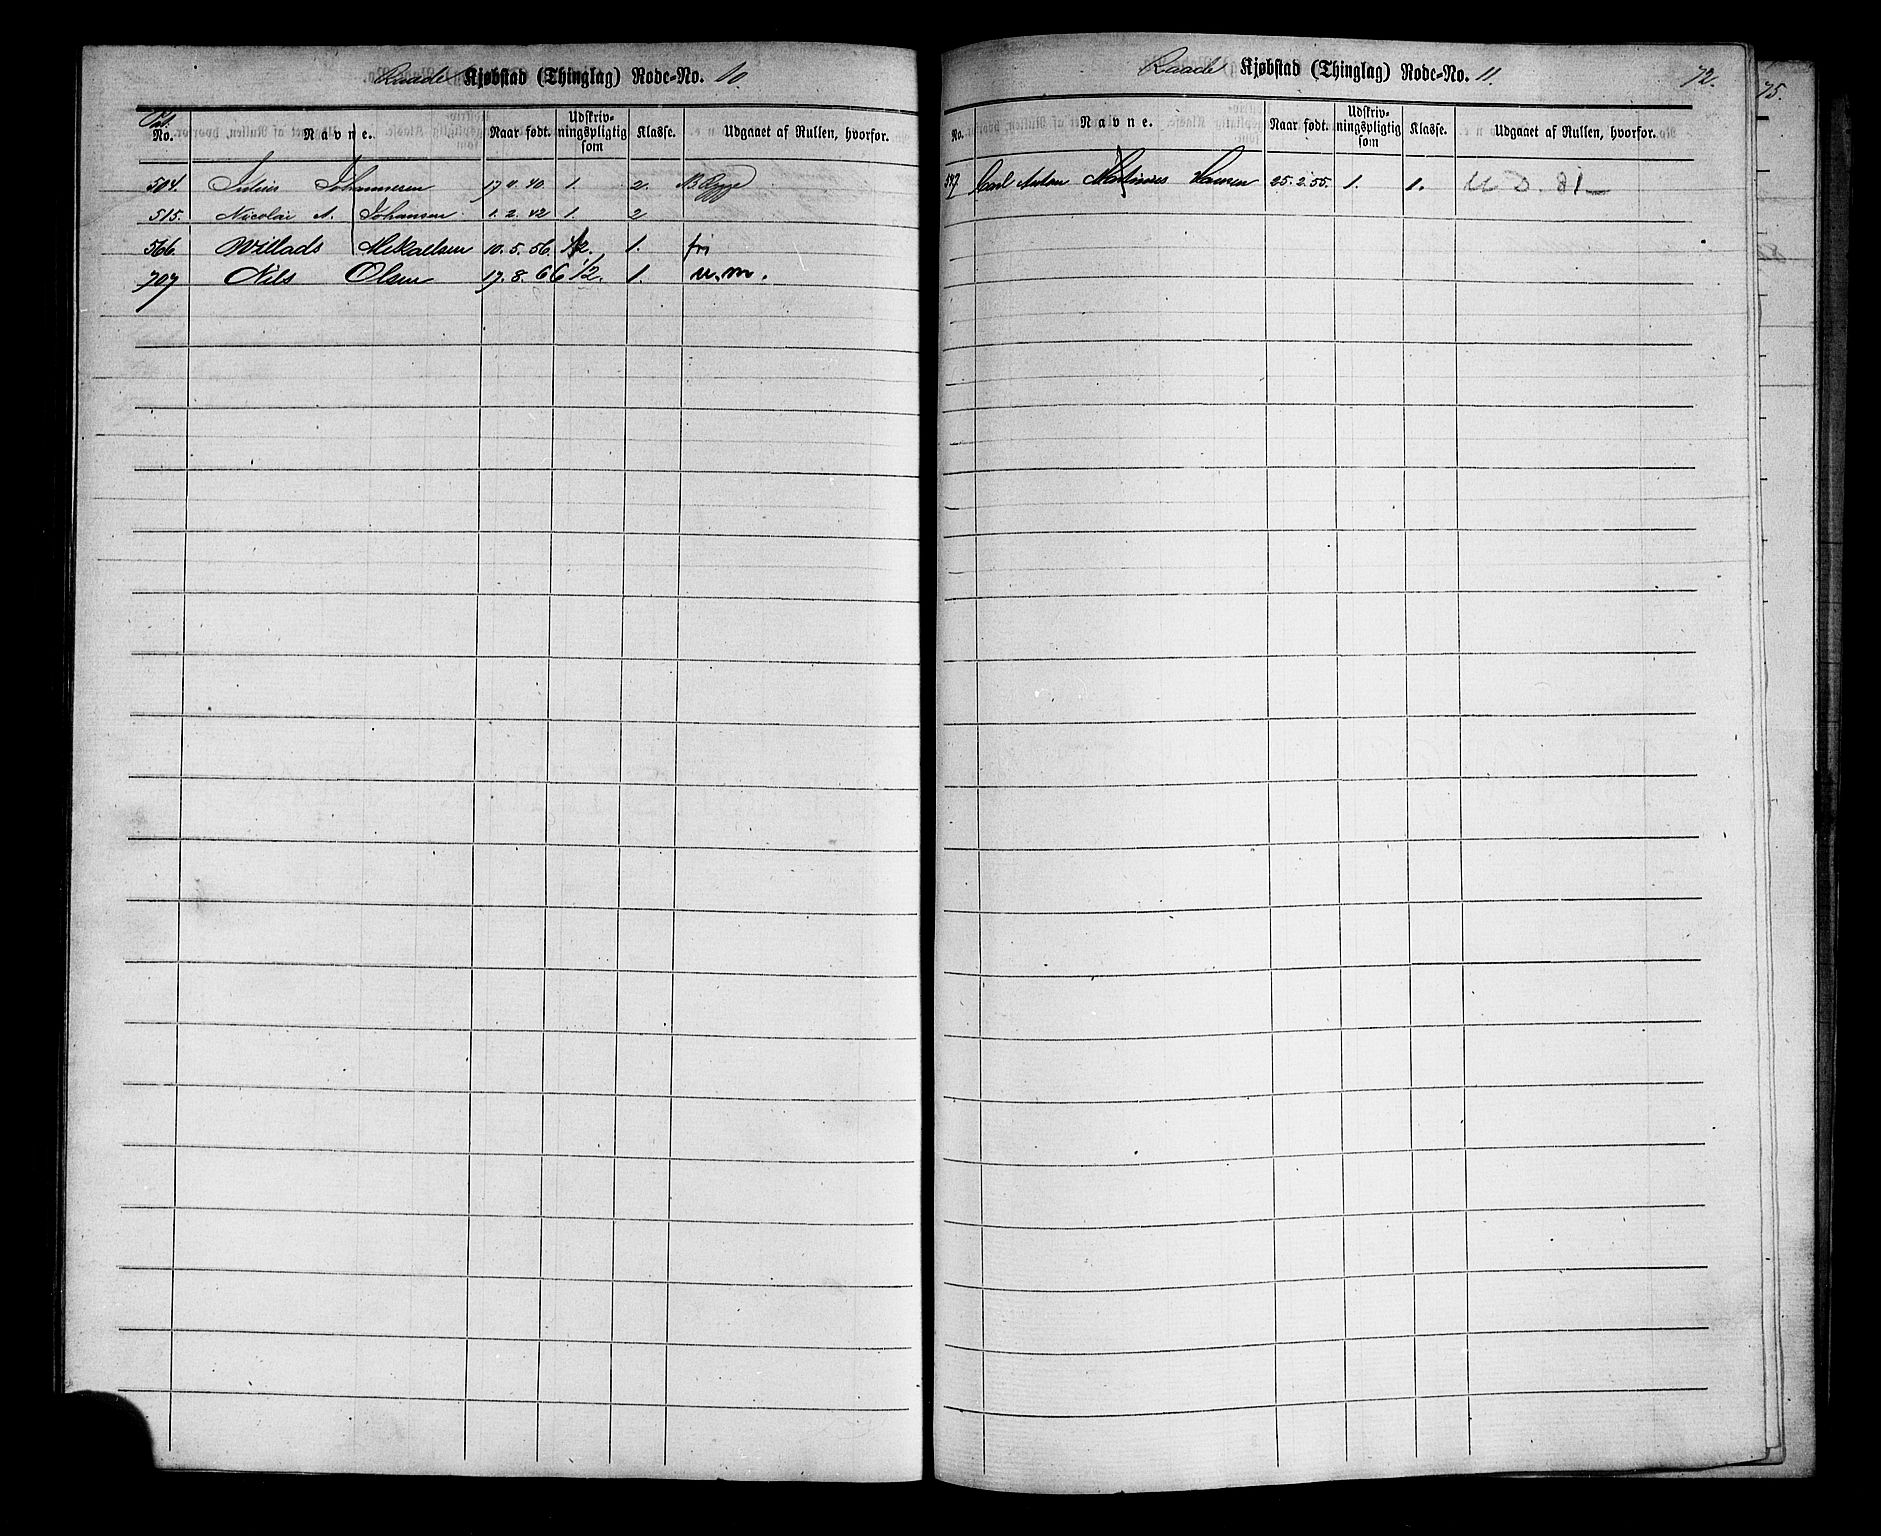 Raade Kjøbstad (Thinglag) Rode-No. 10.
No. Navne. Naar født. Udskriv-ningspligtig som Klasse. Udgaaet af Rullen, hvorfor.
504. Julius Johannesen 17 40. 1. 2.
515. Nicolai A. Johansen 1. 2. 42 1. 2
566. Willads Mekaelsen 10. 5. 56. 1/2. 1. fri
707 Nils Olsen 17. 8. 66 1/2. 1. u.m.
Raade Kjøbstad (Thinglag) Rode-No. 11. 72.
No. Navne. Naar født. Udskriv-ningspligtig som Klasse. Udgaaet af Rullen, hvorfor.
Carl Anton Martinius Hansen 25. 2. 55. 1. 1. U D. 81
75.